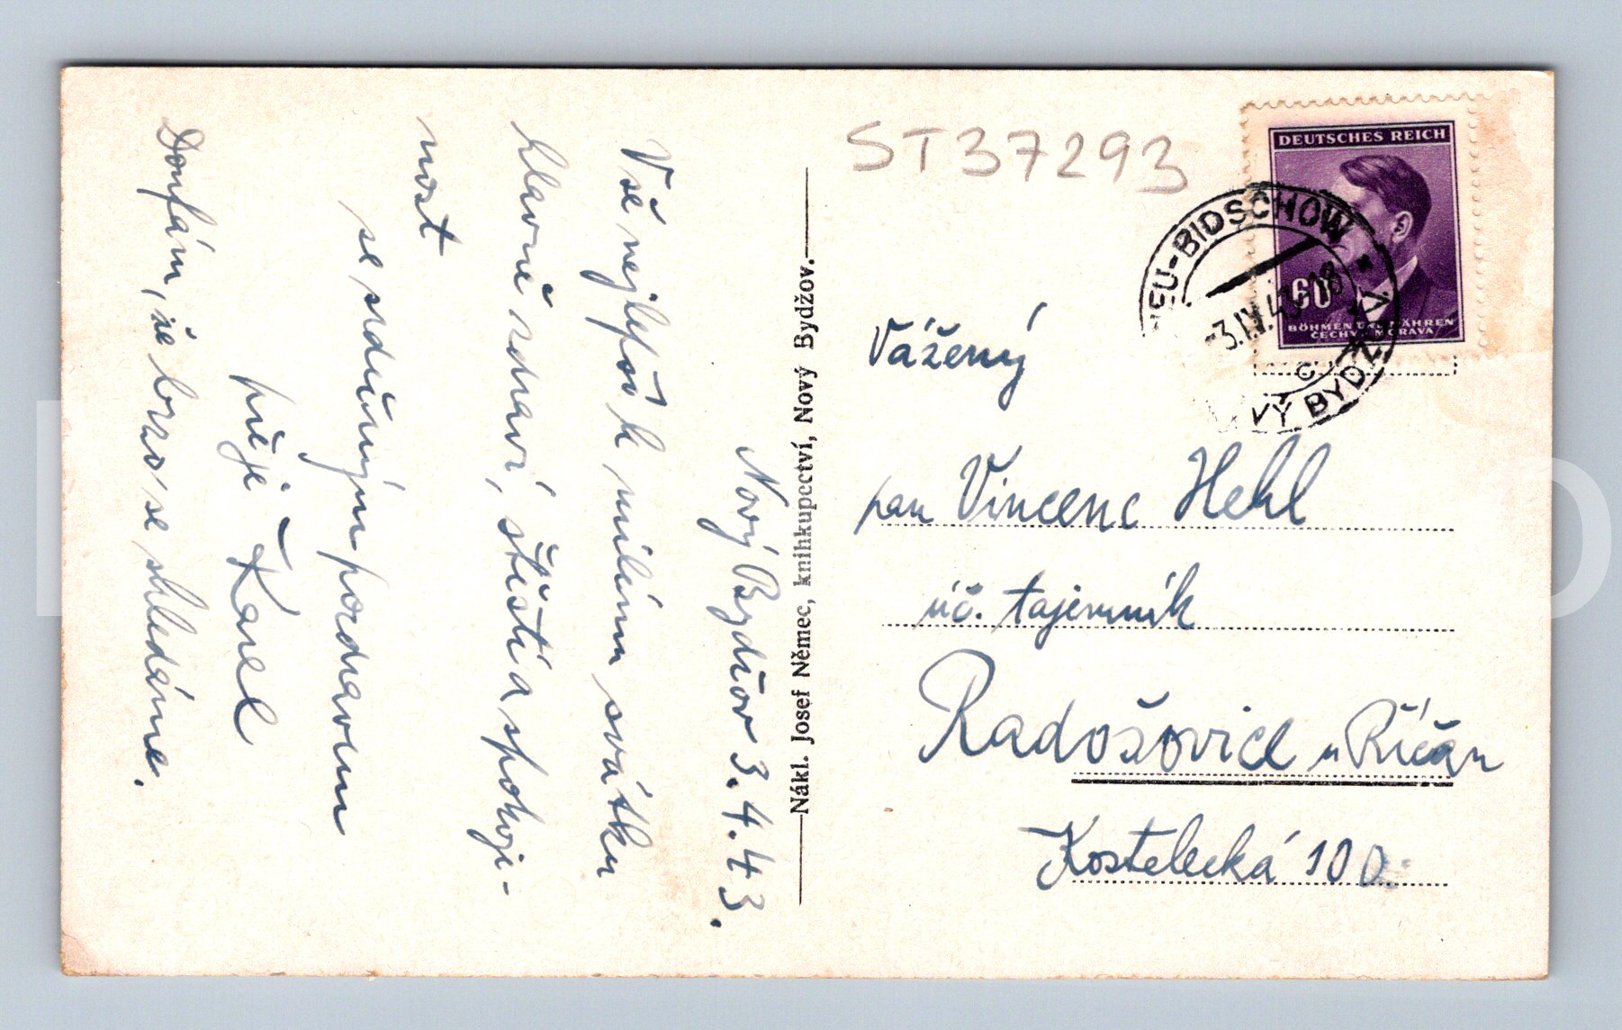 Nový Bydžov 3.4.43.
Vše nejlepší k milému svátku
hlavně zdraví, štěstí a spokoji-
nost
se srdečným pozdravem
přeje Karel
Doufám, že brzo se shledáme.
Nákl. Josef Němec, knihkupectví, Nový Bydžov.
ST37293
DEUTSCHES REICH
60
BÖHMEN UND MÄHREN
ČECHY MORAVA
NEU-BIDSCHOW
-3.IV.43-18
NOVÝ BYDŽOV
Vážený
pan Vincenc Hehl
úč. tajemník
Radošovice u Říčan
Kostelecká 100